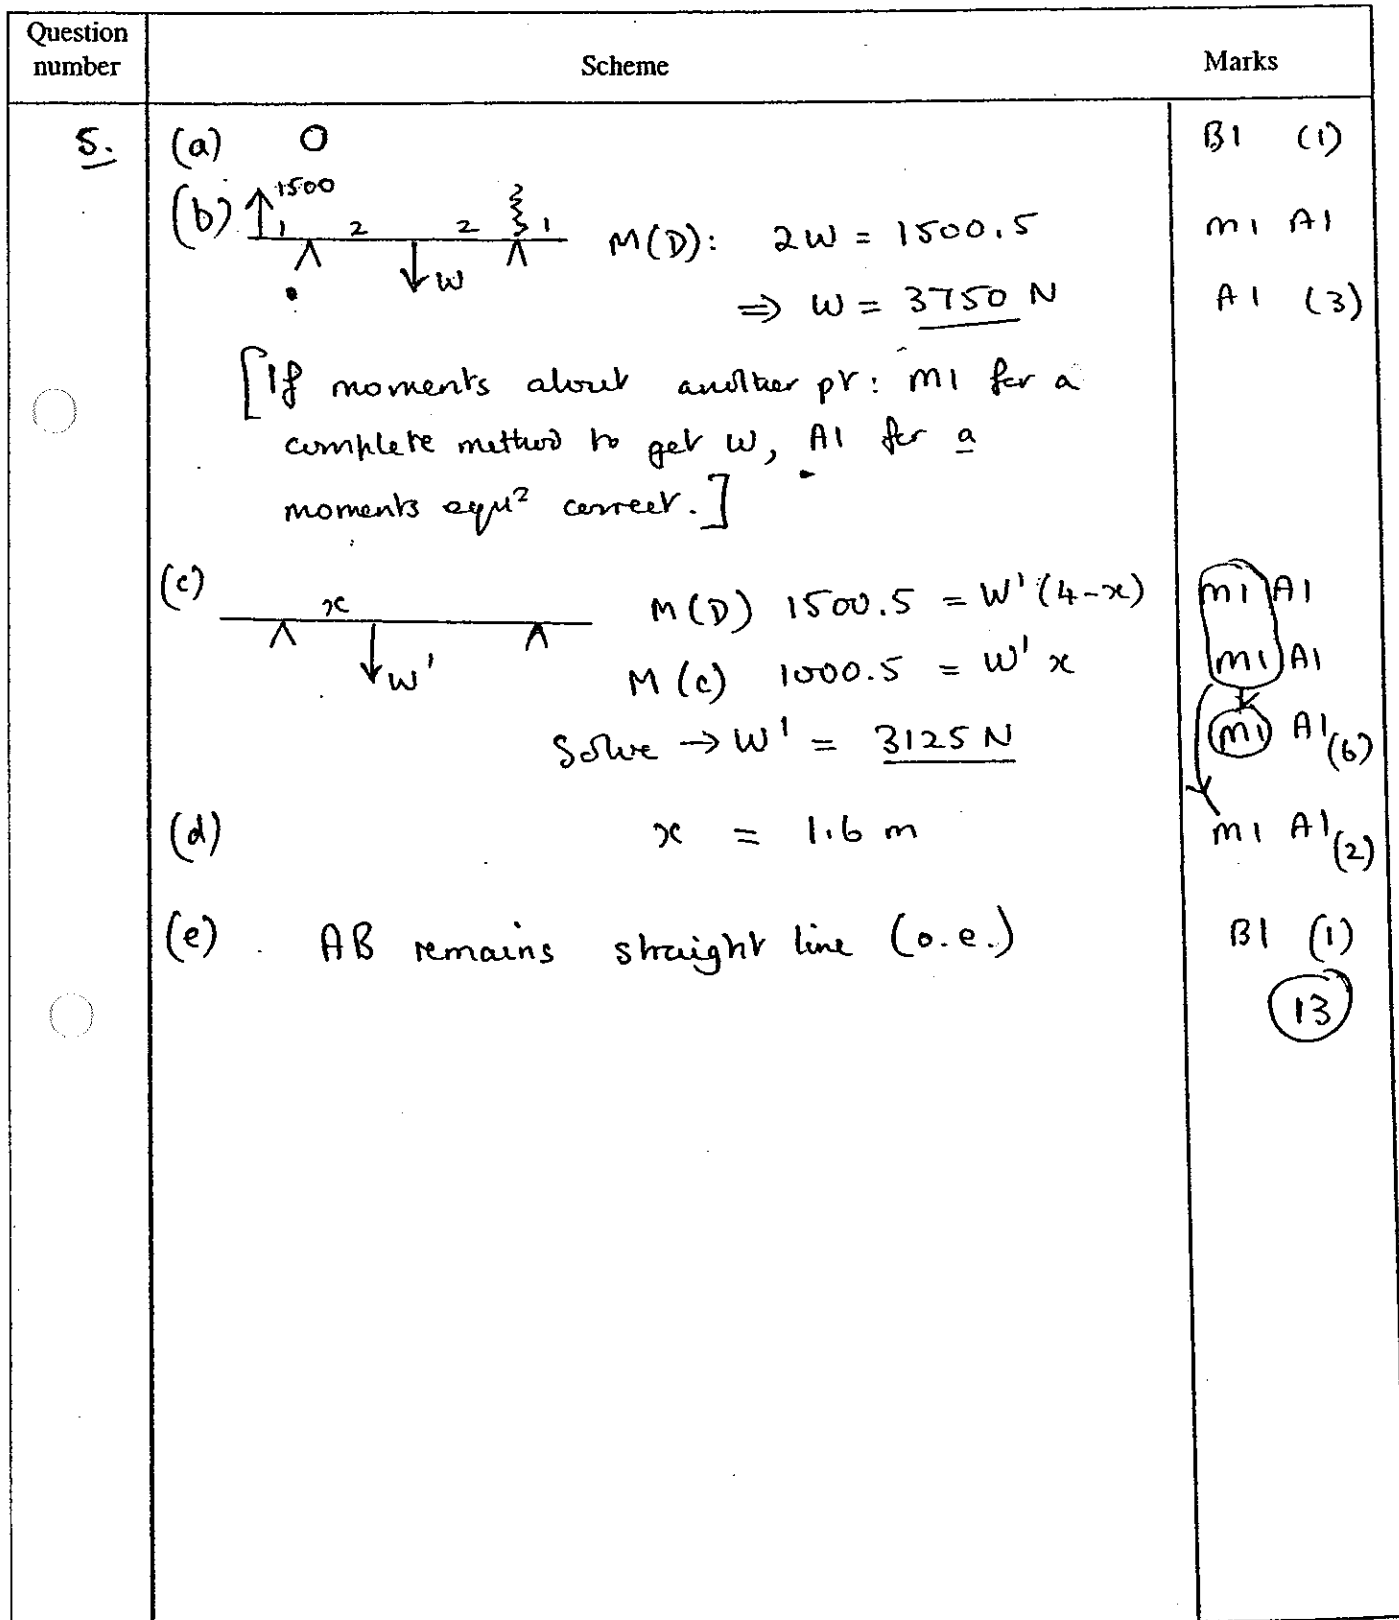 Question number
Scheme
Marks
5.
(a) 0
B1 (1)
(b) 1500
1 2 2 1
W
M(D): 2W = 1500.5
M1 A1
⇒ W = 3750 N
A1 (3)
[If moments about another pt: M1 for a
complete method to get W, A1 for a
moments equⁿ correct.]
(c) x
W'
M(D) 1500.5 = W'(4-x)
M1 A1
M(C) 1000.5 = W'x
M1 A1
Solve → W' = 3125 N
M1 A1 (6)
(d) x = 1.6 m
M1 A1 (2)
(e) AB remains straight line (o.e.)
B1 (1)
13